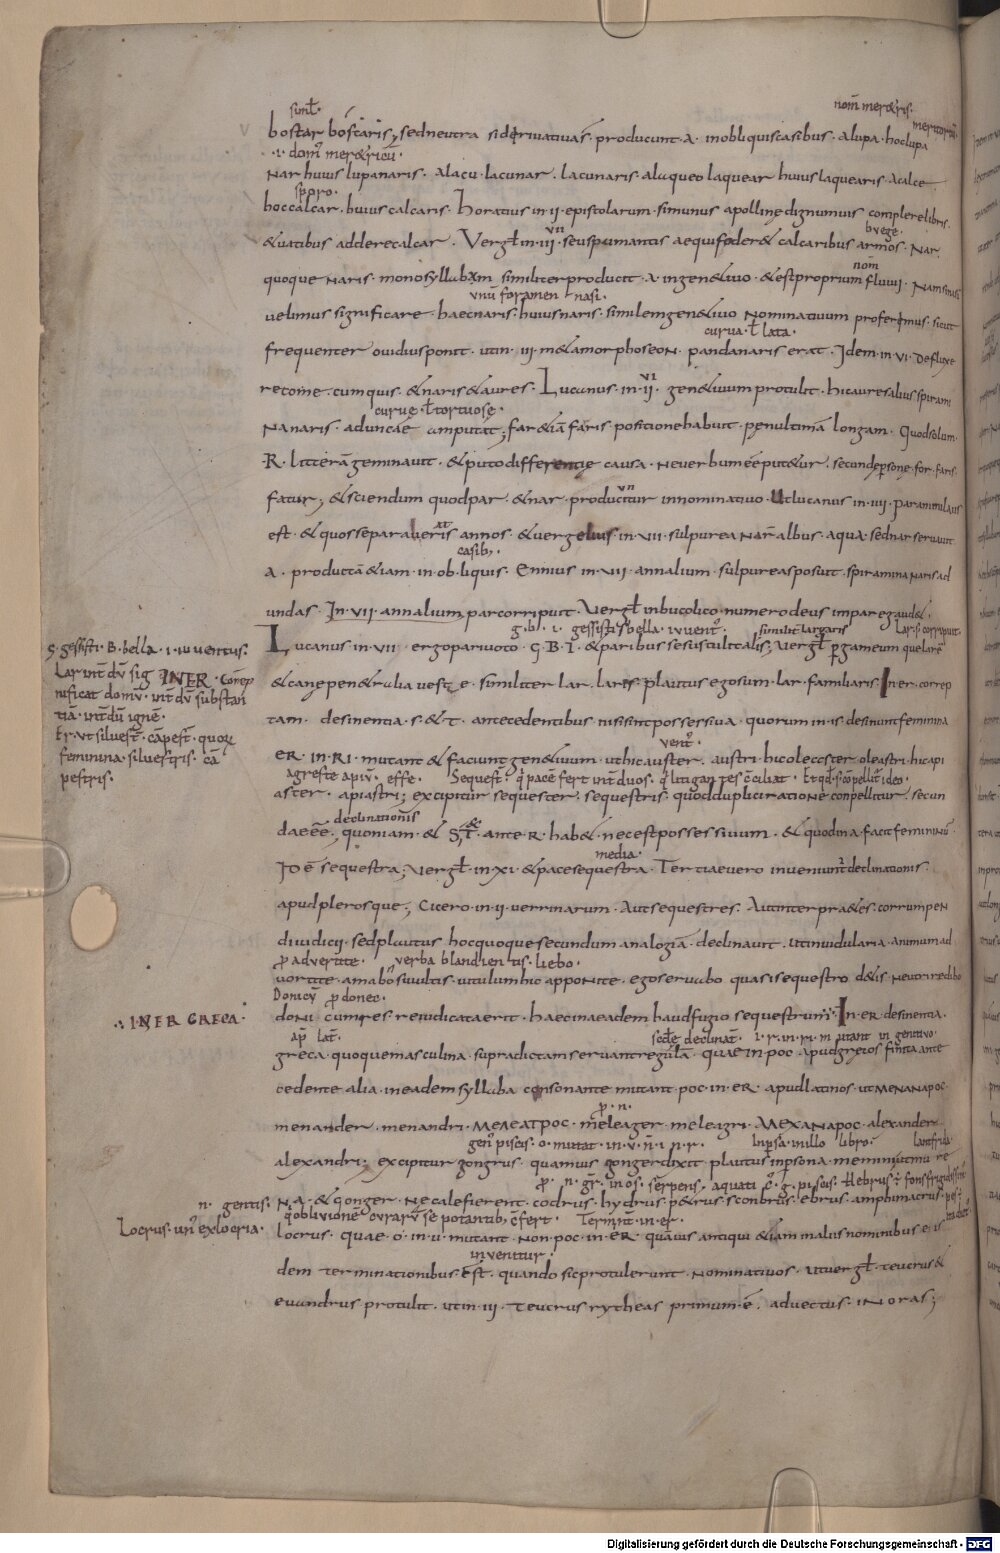 simł· nom̄ mer&ris·
bostar bostaris, sed neutra si dirivativa s· producunt· a· in obliquis casibus· a lupa· hoc lupa
·i· dom' mer&ricū·
nar huius lupanaris· a lacu· lacunar· lacunaris· a laqueo laquear huius laquearis· a calce
sporo·
hoc calcar· huius calcaris· Horatius in ·ii· epistolarum· si munus apolline dignum vis complere libris·
&vatibus addere calcar· Vergł in· seu spumantis aequi foder& calcaribus armos· nar
nom̄
quoque naris· monosyllabum similiter producit· a· in gen&ivo· & est proprium fluvii· Nam si nas
unū foramen nasi·
velimus significare· haec naris· huius naris· similem gen&ivo nominativum proferimus· sicut
curva· ł lata·
frequenter ovidius ponit· ut in· iii· m&amorphoseon· panda naris erat· Idem· in· vi· Defluxe
re come· cum quis· & naris & aures· Lucanus· in· ii· gen&ivum protulit· hic aures alius spirami
curve· ł tortuose·
na naris· aduncae amputat; far &iā farris positione habuit· penultimā longam· Quod solum·
·R· litterā geminavit· & puto differentie causa· ne verbum eē put&ur· secunde persone· for· faris·
fatur; & sciendum quod par· & nar· producitur in nominativo· ut lucanus in· iiii· par animi laus
est· & quos separaveris annos· & vergelius in· vii· sulpurea nar albus· aqua· sed nar servavit
casib;·
a· productā &iam· in· obliquis· Ennius in· vii· annalium· sulpureas posuit· spiramina naris ad
undas· In· vii· annalium par corripuit· Vergł in bucolico· numero deus impare gaud&·
g· b· i· gessisti bella· iuvent'· similit̄ largaris Lar· s· corripuit·
Lucanus· in· vii· ergo pari voto· G· B· I· & paribus se sustulit alis; Vergł pergameum que larē
s· gessisti· B· bella· i· iuventus:
& cane pen&ralia veste· similiter lar· laris· plautus ego sum· lar· familiaris· In er· correp
Lar int̄ dū sig INER· Corep
nificat domū· int̄ dū substan
tiā· int̄ dū ignē·
tam· desinentia· s· & t· antecedentibus nisi sint possessiva· quorum· in· is· desinunt feminina
Er· ut silvest̄· cāpest̄· quoꝝ
feminina· silvestris· cā
pestris·
vent'·
er· in· ri· mutant & faciunt gen&ivum· ut hic auster· austri· hic oleaster oleastri· hic api
agreste apiū· esse· Sequest̄· q̇ pacē fert int̄ duos· q̇ litigantes c̄ciliat·
aster· apiastri; excipitur sequester· sequestris· quod duplici ratione conpellitur· secun
declinationis
dae eē; quoniam· & s, t· ante· r· hab& · nec est possessivum· & quod in a· facit femininū·
media·
Id ē sequestra; Vergł· in· xi· & pace sequestra· Tertiae vero inveniunt' declinationis·
apud plerosque; Cicero· in· ii· verrinarum· Aut sequestres· Aut interpr&es· corrumpen
di iudicii· sed plautus hoc quoque secundum analogiā· declinavit· ut in vidularia· animum ad
p̄ advertite· verba blandientis· liebo·
vortite· amabo si vultis· vitulum hic apponite· ego servabo quasi sequestro d&is· neutri reddibo
Donicū p̄ donec·
doni cum res reiudicata erit· haec in a eadem haud fugio sequestrum·· In· er· desinentia·
∴ INER GRECA·
ap̄ lat̄· scd̄e declinat̄· ·i· r· in· ri· mutant in gentivo·
greca· quoque masculina· supradictam servant regula· quae in· poc· apud greios finita ante
cedente alia· in eadem syllaba consonante mutant· poc· in· er· apud latinos· ut menanapoc·
p̄· n·
menander· menandri· meleatpoc· meleager· meleagri· alexanapoc· alexander·
gen' piscis· o· mutat· in· v· n̄· i n· r· in p̄sa· in illo libro·
alexandri; excipitur gongrus· quamvis gonger dixit· plautus in persona· meminit mu re
p̄· n· gr̄· in os· serpens, aquati
na· & gonger· ne calefierent· codrus· hydrus· p&rus· scombrus· ebrus· amphimacrus·
n· gentis:
q̇ oblivionē curarū se potantib; c̄fert· Termīt· in er·
Locrus· un' ex locria·
locrus· quae· o· in· u· mutant· non· poc· in· er· quāvis antiqui &iam in aliis nominibus· eius
invenitur·
dem terminationibus· est· quando sic protulerunt· nominativos· ut vergł· teucrus &
evandrus protulit· ut in· iii· teucrus rytheas primum· ē· advectus· in oras;
Digitalisierung gefördert durch die Deutsche Forschungsgemeinschaft - DFG